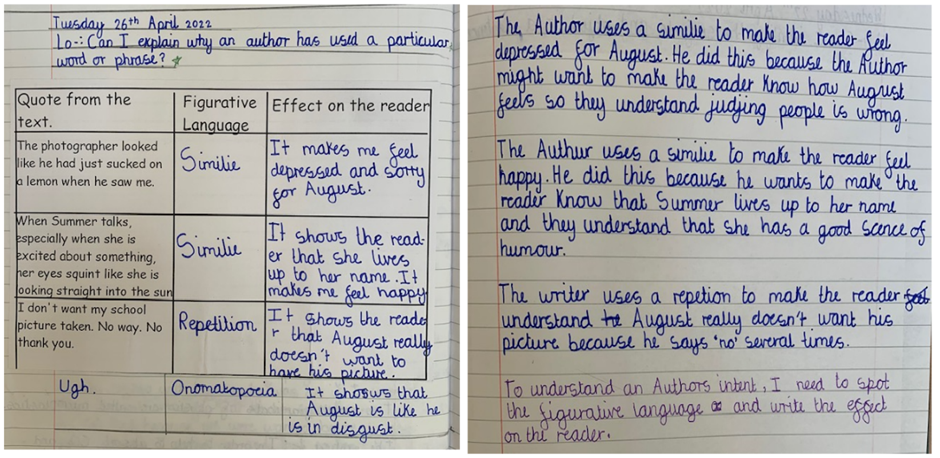 Tuesday 26th April 2022
Lo:- Can I explain why an author has used a particular
word or phrase?
Quote from the
text.
Figurative
Language
Effect on the reader
The photographer looked
like he had just sucked on
a lemon when he saw me.
Similie
It makes me feel
depressed and sorry
for August.
When Summer talks,
especially when she is
excited about something,
her eyes squint like she is
ooking straight into the sun
Similie
It shows the read-
er that she lives
up to her name. It
makes me feel happy
I don't want my school
picture taken. No way. No
thank you.
Repetition
It shows the reade
r that August really
doesn't want to
have his picture.
Ugh.
Onomatopoeia
It shows that
August is like he
is in disgust.
The Author uses a similie to make the reader feel
depressed for August. He did this because the Author
might want to make the reader Know how August
feels so they understand judjing people is wrong.
The Authur uses a similie to make the reader feel
happy. He did this because he wants to make the
reader Know that Summer lives up to her name
and they understand that she has a good scence of
humour.
The writer uses a repetion to make the reader feel
understand te August really doesn't want his
picture because he says 'no' several times.
To understand an Authors intent, I need to spot
the figurative language and write the effect
on the reader.